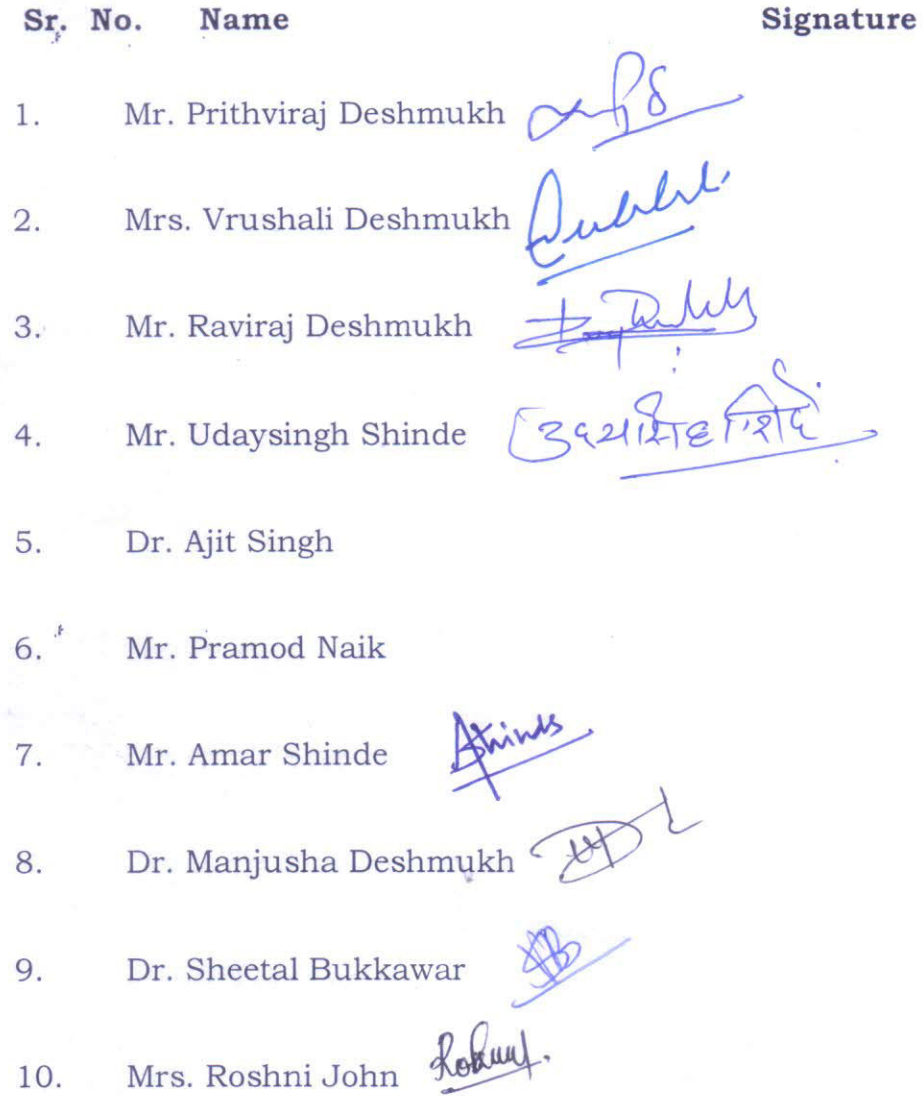 Sr. No. Name Signature
1. Mr. Prithviraj Deshmukh
2. Mrs. Vrushali Deshmukh
3. Mr. Raviraj Deshmukh
4. Mr. Udaysingh Shinde उदयसिंह शिंदे
5. Dr. Ajit Singh
6. Mr. Pramod Naik
7. Mr. Amar Shinde AShinde
8. Dr. Manjusha Deshmukh
9. Dr. Sheetal Bukkawar
10. Mrs. Roshni John